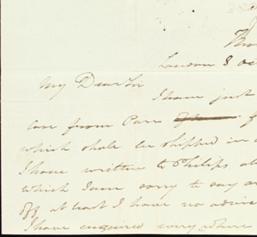 London 8 Oc
My Dear Sir
I have just
care from Paris f
which shall be shipped in
I have written to Philips ab
which I am sorry to say ar
off at least I have no advice
I have enquired every where